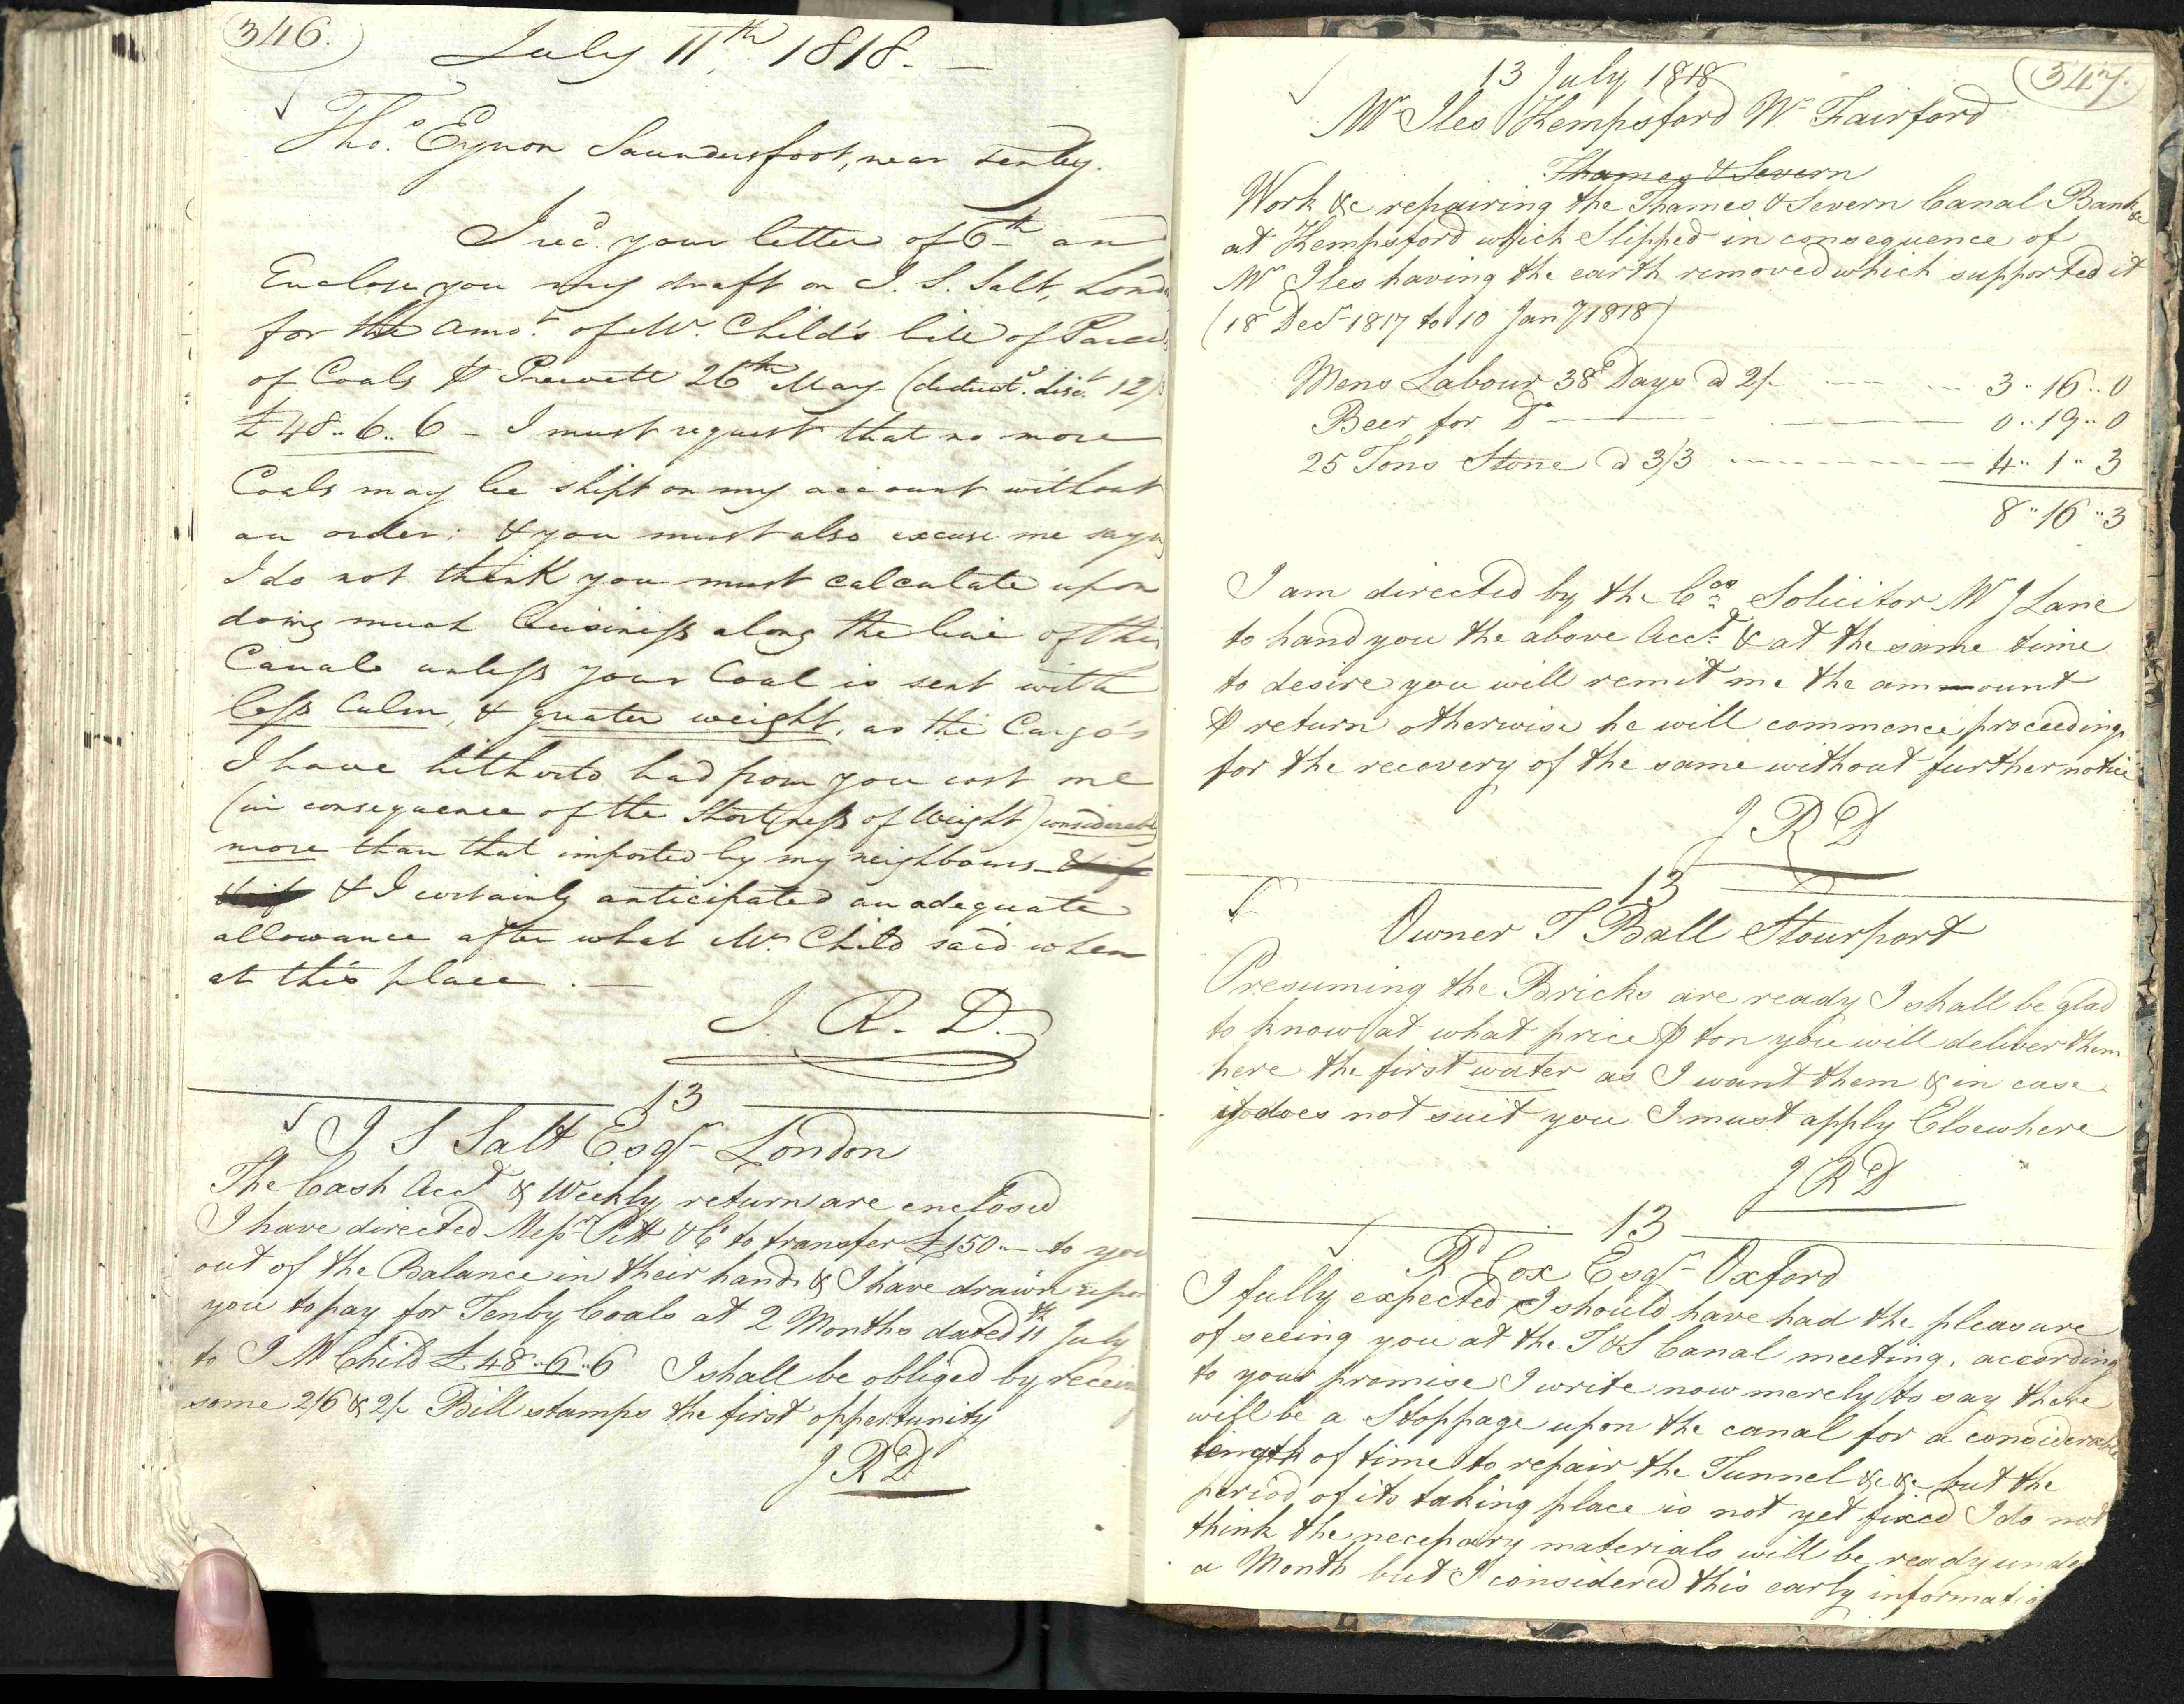 346.
July 11th 1818. —
Thos. Eynon Saundersfoot, near Tenby.
I recd. your letter of 6th and
Enclose you my draft on J. S. Salt, Londo
for the amot. of Mr. Child's bill of Parcel
of Coals P Prewett 26th May (deductg. disct. 12/)
£48..6..6 – I must request that no more
Coals may be shipt on my account without
an order; & you must also excuse me sayg
I do not think you must calculate upon
doing much business along the line of this
Canal unless your Coal is sent with
less Culm, & greater weight, as the Cargo's
I have hitherto had from you cost me
(in consequence of the Shortness of Weight) considerably
more than that imported by my neighbours –
& I certainly anticipated an adequate
allowance after what Mr. Child said when
at this place. —
J. R. D.
13
J S Salt Esqr London
The Cash Acct & Weekly return are enclosed
I have directed Messrs Pitt & Co to transfer £150.– to you
out of the Balance in their hands & I have drawn upon
you to pay for Tenby Coals at 2 Months dated 11th July
to J M Child £48..6..6 I shall be obliged by receivg
some 2/6 & 2/- Bill stamps the first oppertunity
J R D
347.
13 July 1818
Mr Iles Kempsford Nr Fairford
Thames & Severn
Work &c repairing the Thames & Severn Canal Bank &c
at Kempsford which Slipped in consequence of
Mr Iles having the earth removed which supported it
(18 Decr 1817 to 10 Jany 1818)
Mens Labour 38 Days @ 2/- — — 3..16..0
Beer for Do — — 0..19..0
25 Tons Stone @ 3/3 — — 4..1..3
8..16..3
I am directed by the Cos Solicitor Mr J Lane
to hand you the above Acct. & at the same time
to desire you will remit me the ammount
P return otherwise he will commence proceedings
for the recovery of the same without further notice
J R D
13
Owner T Ball Stourport
Presuming the Bricks are ready I shall be glad
to know at what price P ton you will deliver them
here the first water as I want them & in case
it does not suit you I must apply Elsewhere
J R D
13
R Cox Esqr Oxford
I fully expected I should have had the pleasure
of seeing you at the T & S Canal meeting, according
to your promise I write now merely to say there
will be a Stoppage upon the canal for a considerable
length of time to repair the Tunnel &c &c but the
period of its taking place is not yet fixed I do not
think the necessary materials will be ready under
a Month but I considered this early informatio